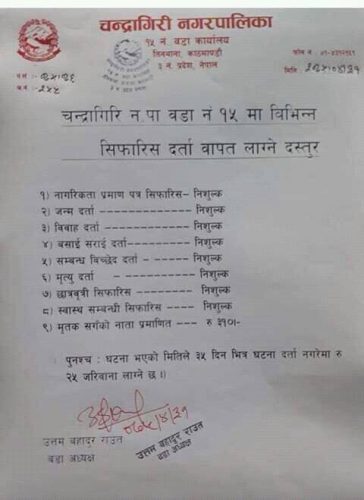 चन्द्रागिरी नगरपालिका
१५ नं. वडा कार्यालय
काठमाडौं
३ नं. प्रदेश, नेपाल
मिति:
चन्द्रागिरि न.पा वडा नं १५ मा विभिन्न
सिफारिस दर्ता वापत लाग्ने दस्तुर
१) नागरिकता प्रमाण पत्र सिफारिस– निशुल्क
२) जन्म दर्ता ----------- निशुल्क
३) विवाह दर्ता ----------- निशुल्क
४) बसाई सराई दर्ता--------- निशुल्क
५) सम्बन्ध विच्छेद दर्ता ------ निशुल्क
६) मृत्यु दर्ता - ----------- निशुल्क
७) छात्रवृत्ती सिफारिस -------- निशुल्क
८) स्वास्थ सम्बन्धी सिफारिस ---- निशुल्क
९) मृतक सगँको नाता प्रमाणित --- रु ३१०।-
पुनश्च : घटना भएको मितिले ३५ दिन भित्र घटना दर्ता नगरेमा रु
२५ जरिवाना लाग्ने छ ॥
उत्तम बहादुर राउत
वडा अध्यक्ष
उत्तम बहादुर राउत
वडा अध्यक्ष